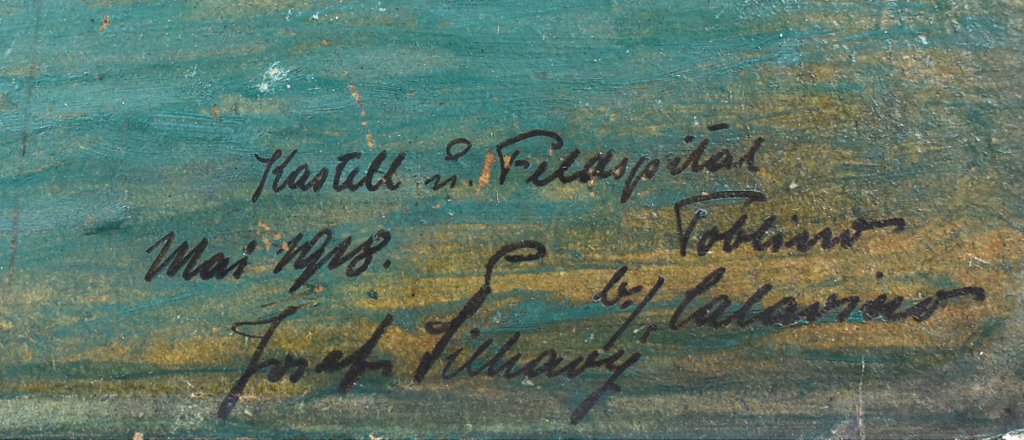 Kastell u. Feldspital
Toblino
Mai 1918.
b./ Calavino
Josef Silhavý